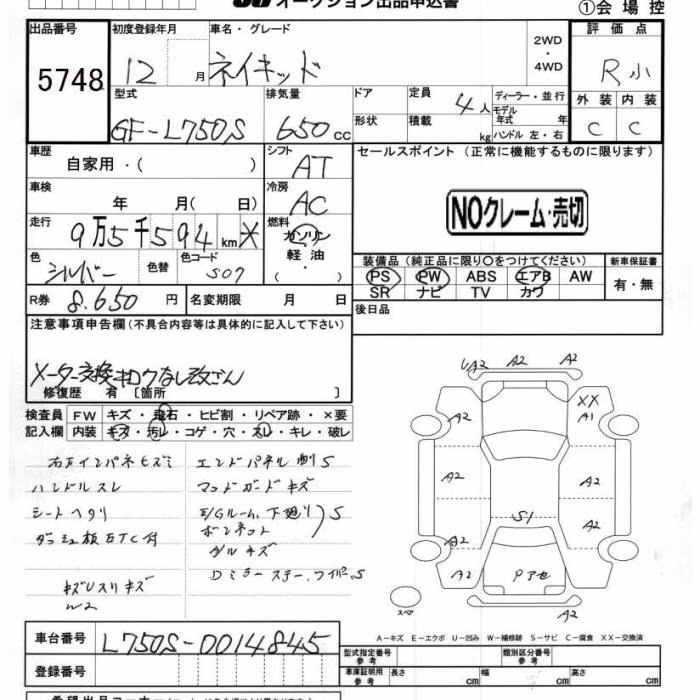 オークション出品申込書
①会場控
出品番号 初度登録年月 車名・グレード 2WD・4WD 評価点
5748 12月 ネイキッド R小
型式 排気量 ドア 定員 ディーラー・並行 外装 内装
GF-L750S 650cc 形状 積載 4人 kg モデル年式 年 ハンドル 左・右 C C
車歴 シフト セールスポイント(正常に機能するものに限ります)
自家用・( ) AT
車検 冷房
年 月( 日) AC NOクレーム・売切
走行 燃料
9万5千594km* ガソリン
軽油・
( )
装備品(純正品に限り○をつけてください) 新車保証書
色 色替 色コード
シルバー S07
PS PW ABS エアB AW 有・無
SR ナビ TV カワ
R券 8.650円 名変期限 月 日 後日品
注意事項申告欄(不具合内容等は具体的に記入して下さい)
メーター交換キロクなし改ざん
修復歴 有〔箇所 〕
検査員 FW キズ・飛石・ヒビ割・リペア跡・×要
記入欄 内装 キズ・汚レ・コゲ・穴・スレ・キレ・破レ
インパネキズミ エンドパネル 割S
ハンドルスレ マッドガードキズ
シートヘタリ E/Gルーム、下廻り S
ダッシュ板ETC付 ボンネット
キズ
キズUスリキズ Dミラーステー、ワイパーS
W2
UA2 A2 A2
A2 XX
A1
A2 A2
A2 S1 A2
A2 Pアセ A2
スペア A2
A-キズ E-エクボ U-凹み W-補修跡 S-サビ C-腐食 XX-交換済
車台番号 L750S-0014845
型式指定番号 参考 類別区分番号 参考
登録番号 車庫証明用 参考 長さ cm 幅 cm 高さ cm